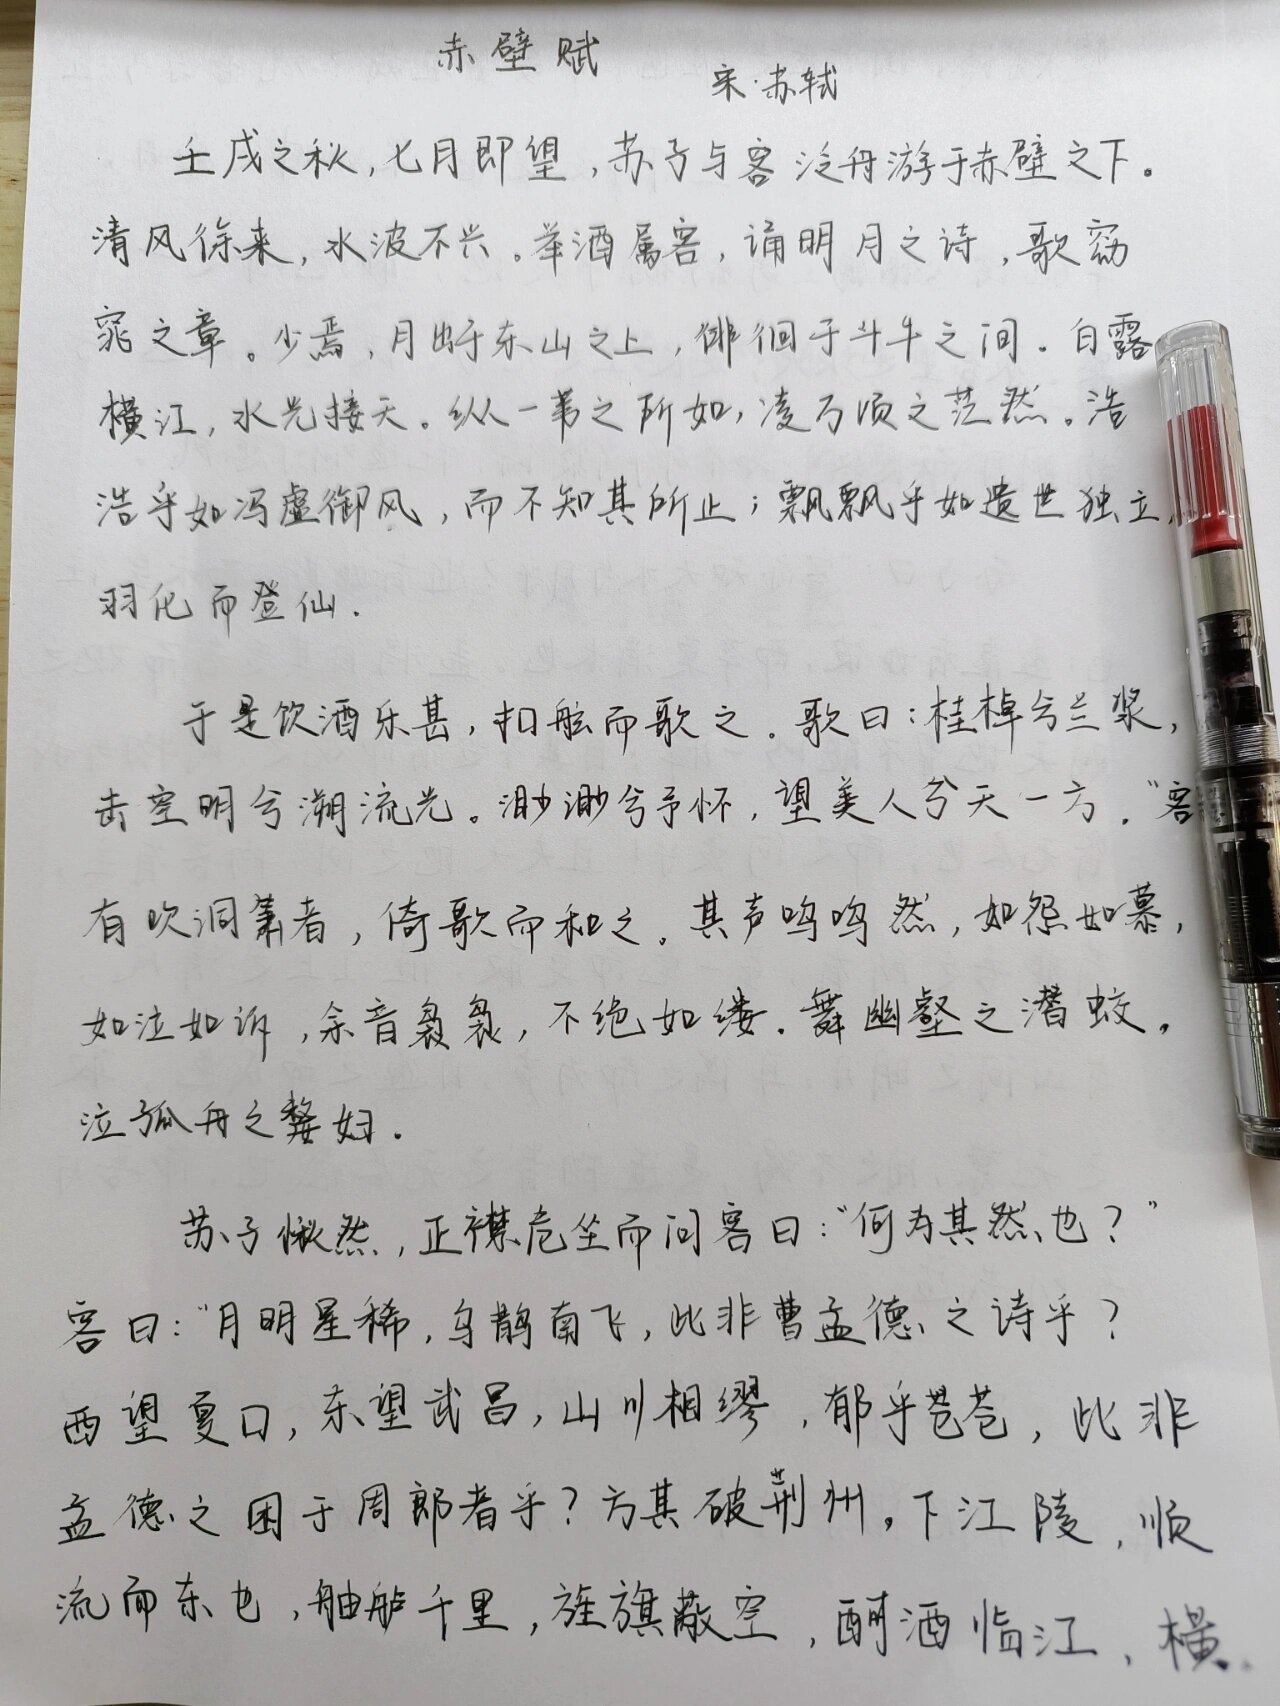 赤壁赋
宋·苏轼
壬戌之秋，七月即望，苏子与客泛舟游于赤壁之下。
清风徐来，水波不兴。举酒属客，诵明月之诗，歌窈
窕之章。少焉，月出于东山之上，徘徊于斗牛之间。白露
横江，水光接天。纵一苇之所如，凌万顷之茫然。浩
浩乎如冯虚御风，而不知其所止；飘飘乎如遗世独立，
羽化而登仙.
于是饮酒乐甚，扣舷而歌之。歌曰：桂棹兮兰桨，
击空明兮溯流光。渺渺兮予怀，望美人兮天一方．"客
有吹洞箫者，倚歌而和之。其声呜呜然，如怨如慕，
如泣如诉，余音袅袅，不绝如缕．舞幽壑之潜蛟，
泣孤舟之嫠妇．
苏子愀然，正襟危坐而问客曰："何为其然也？"
客曰："月明星稀，乌鹊南飞，此非曹孟德之诗乎？
西望夏口，东望武昌，山川相缪，郁乎苍苍，此非
孟德之困于周郎者乎？方其破荆州，下江陵，顺
流而东也，舳舻千里，旌旗蔽空，酾酒临江，横